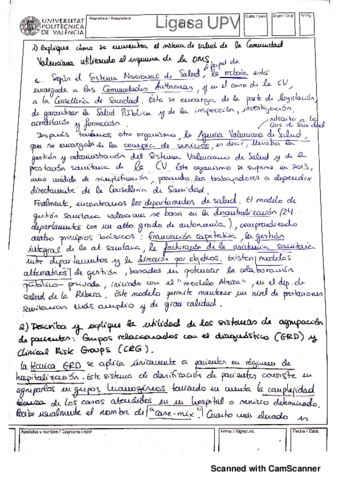 UNIVERSITAT
POLITÈCNICA
DE VALÈNCIA
Asignatura / Assignatura
Ligasa UPV
Nº Pg
1) Explique cómo se encuentra el sistema de salud de la Comunidad
Valenciana utilizando el esquema de la OMS.
Según el Sistema Nacional de Salud, la rectoría está
encargada a las Comunidades Autónomas, y en el caso de la CV,
a la Conselleria de Sanidad. Esta se encarga de la parte de legislación,
de garantizar la Salud Pública y de la inspección, investigación,
acreditación y formación.
Después tenemos otro organismo, la Agencia Valenciana de Salud,
que se encargaba de la compra de servicios, es decir, llevaba la
gestión y administración del Sistema Valenciano de Salud y de la
prestación sanitaria de la CV. Este organismo se suprime en 2013,
como medida de simplificación, pasando los trabajadores a depender
directamente de la Conselleria de Sanidad.
Finalmente, encontramos los departamentos de salud. El modelo de
gestión sanitaria valenciano se basa en la descentralización (24
departamentos con un alto grado de autonomía), comprendiendo
cuatro principios básicos: financiación capitativa, la gestión
integral de la at. sanitaria, la facturación de la asistencia sanitaria
entre departamentos y la dirección por objetivos. Existen modelos
alternativos de gestión, basados en potenciar la colaboración
público-privada, iniciado con el "modelo Alzira", en el dep. de
salud de la Ribera. Este modelo permite mantener un nivel de prestaciones
sanitarias más amplio y de gran calidad.
2) Describa y explique la utilidad de los sistemas de agrupación
de pacientes: Grupos relacionados con el diagnóstico (GRD) y
Clinical Risk Groups (CRG).
La técnica GRD se aplica únicamente a pacientes en régimen de
hospitalización. Este sistema de clasificación de pacientes consiste en
agruparlos en grupos homogéneos teniendo en cuenta la complejidad
de los casos atendidos en un hospital o servicio determinado.
Recibe usualmente el nombre de "case-mix". Cuanto más elevado es
Apellidos y nombre / Cognoms i nom
Firma / Signatura
Fecha / Data
Scanned with CamScanner